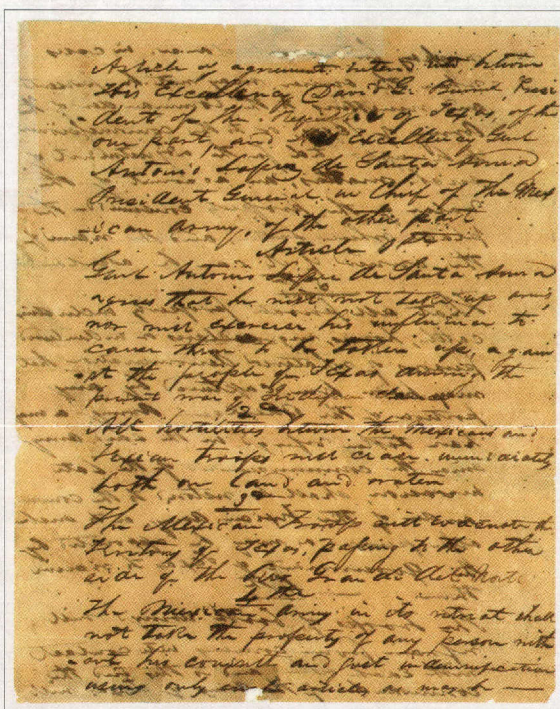 Articles of agreement entered into between
His Excellency David G. Burnet, Presi
-dent of the Republic of Texas, of the
one part, and His Excellency Genl
Antonio Lopez de Santa Anna
President General in Chief of the Mex
-ican army, of the other part
Article 1st
Genl Antonio Lopez de Santa Anna
agrees that he will not take up arms,
nor will exercise his influence to
cause them to be taken up, again
-st the people of Texas during the
present war of
2
All hostilities between the Mexican and
Texian troops will cease immediately
both on land and water
3d
The Mexican Troops will evacuate the
Territory of Texas, passing to the other
side of the Rio Grande del Norte
4th
The Mexican army in its retreat shall
not take the property of any person with
-out his consent and just indemnification
using only such articles as